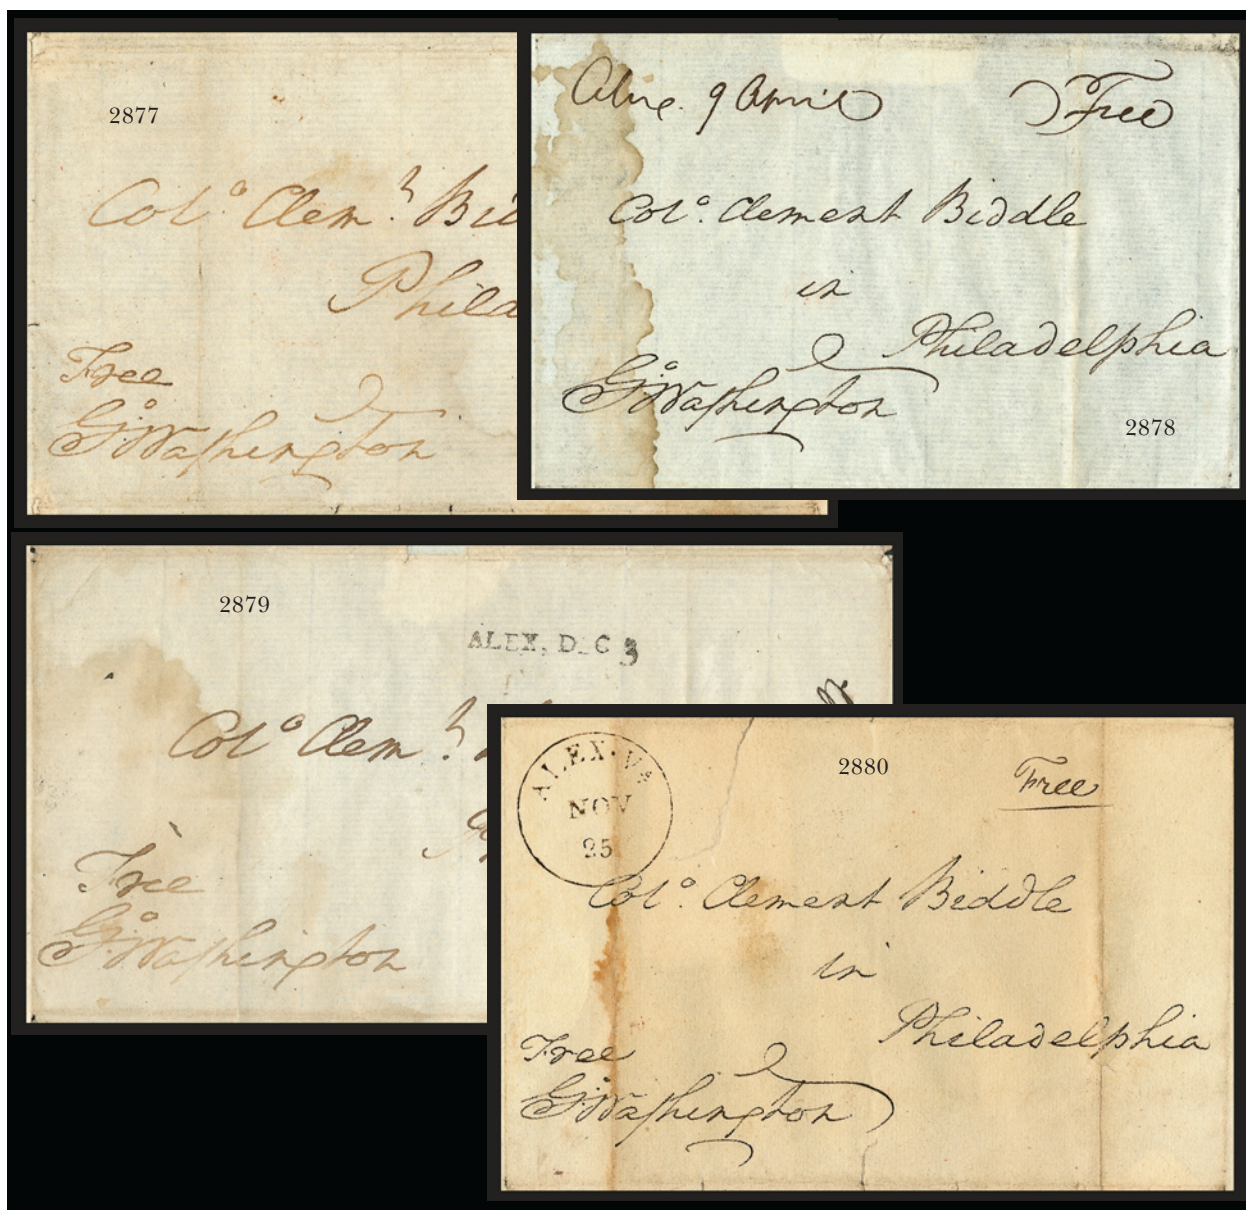 2877
Colo. Clemt. Bid
Phila
Free
Go: Washington
Alex. 9 April
Free
Colo. Clement Biddle
in
Philadelphia
Go: Washington
2878
2879
ALEX, D.C 3
Colo. Clemt.
Free
Go: Washington
ALEX. Va
NOV
25
2880
Free
Colo. Clement Biddle
in
Philadelphia
Free
Go: Washington